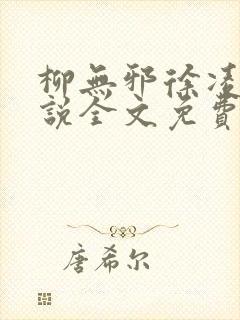 柳無邪徐凌
說全文免費
唐希尔